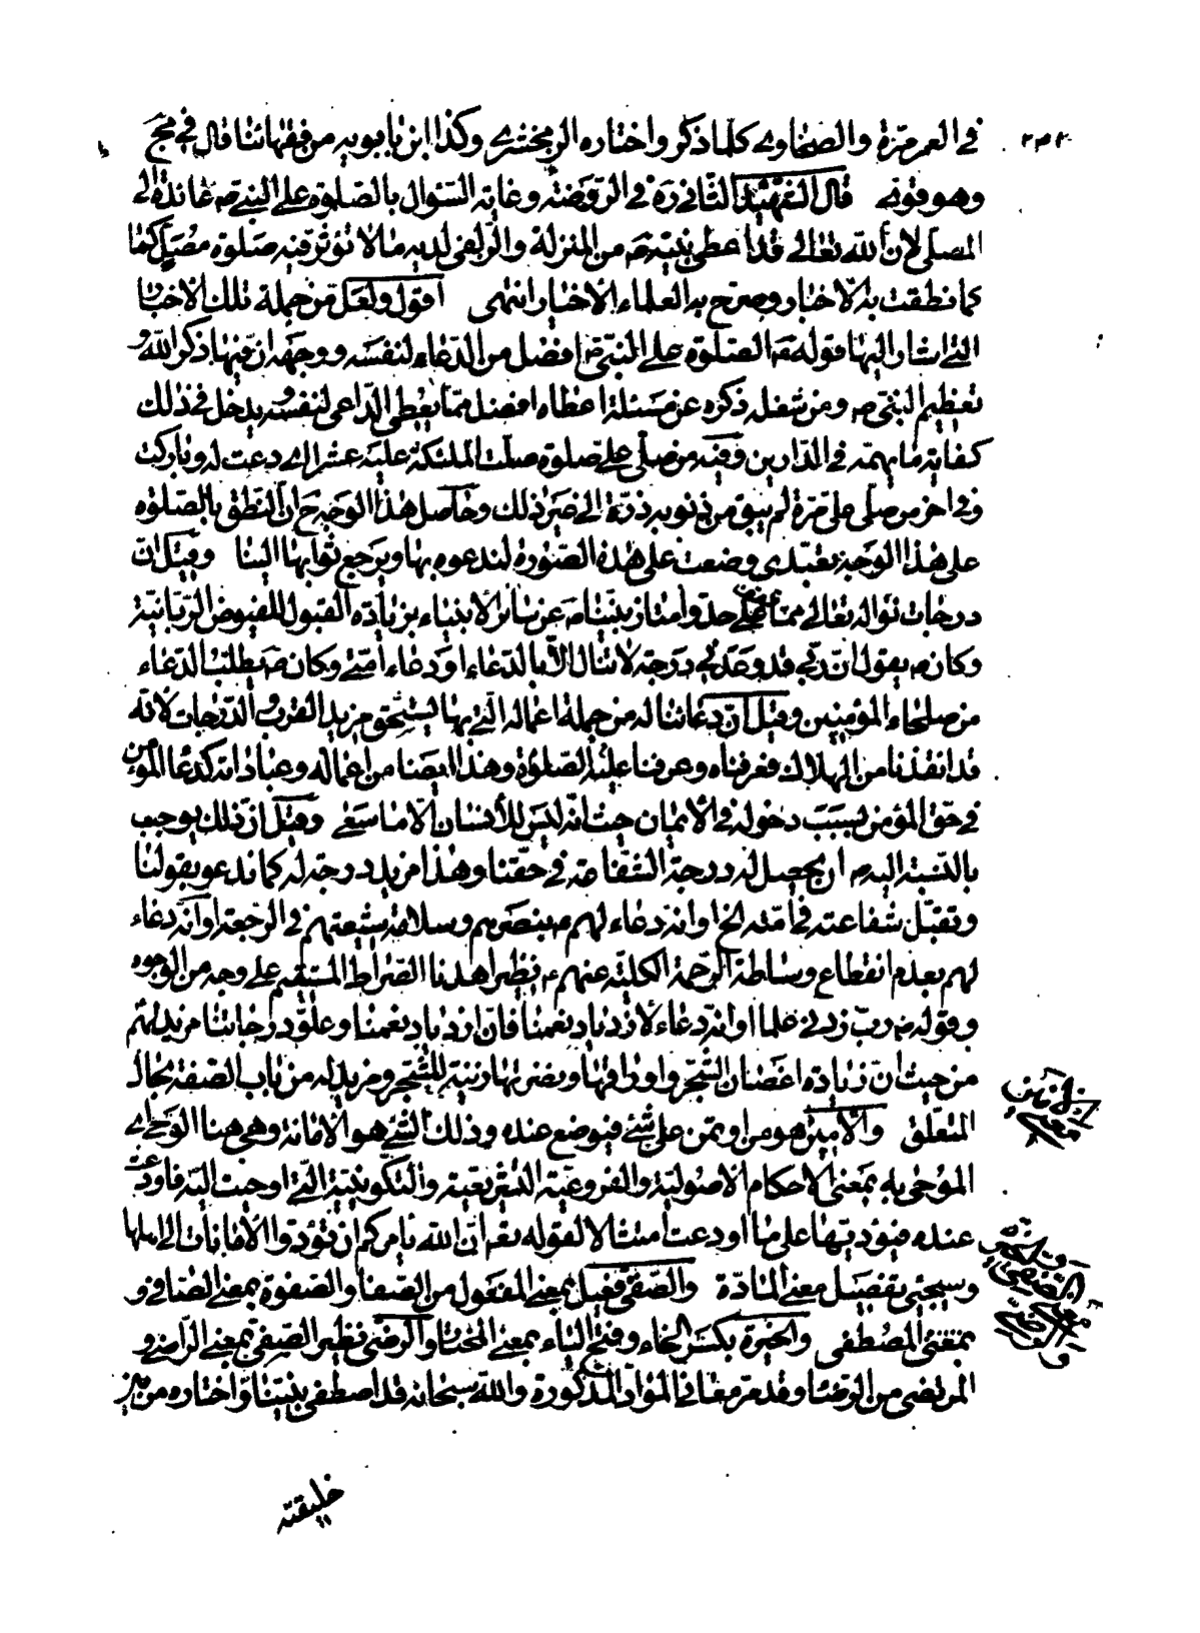 ٢٣٢
في العمر مرة والطحاوي كلما ذكر واختاره الزمخشري وكذا ابن بابويه من فقهائنا قال في مجمع
وهو قوي قال الشهيد الثاني ره في الروضة وغاية السؤال بالصلوة على النبي ص عائدة الى
المصلي لان الله تعالى قد اعطى نبيه ص من المنزلة والزلفى لديه ما لا تؤثر فيه صلوة مصل كما
كما نطقت به الاخبار وصرح به العلماء الاخيار انتهى اقول ولعل من جملة تلك الاخبار
التي اشار اليها قوله ص الصلوة على النبي ص افضل من الدعاء لنفسه ووجهه ان فيها ذكر الله و
تعظيم النبي ص ومن شغله ذكره عن مسئلة اعطاه افضل مما يعطى الداعي لنفسه ويدخل في ذلك
كفاية ما يهمه في الدارين وفيه من صلى علي صلوة صلت الملئكة عليه عشرا اي دعت له وباركت
وفي اخر من صلى علي مرة لم يبق من ذنوبه ذرة الى غير ذلك وحاصل هذا الوجه ح ان النطق بالصلوة
على هذا الوجه تعبدي وضعت على هذه الصورة لندعوه بها ويرجع ثوابها الينا وقيل ان
درجات نواله تعالى مما حد وامتاز نبينا ص عن سائر الانبياء بزيادة القبول للفيوض الربانية
وكان ص يقول ان ربي قد وعدني درجة لا تنال الا بالدعاء او دعاء امتي وكان ص يطلب الدعاء
من صلحاء المؤمنين وقيل ان دعائنا له من جملة اعماله التي بها يستحق مزيد القرب والدرجات لانه
قد انقذنا من الهلاك فعرفناه وعرفنا عليه الصلوة وهذا ايضا من اعماله وعباداته كدعاء المؤمن
في حق المؤمن بسبب دخوله في الايمان حيث انه ليس للانسان الا ما سعى وقيل ان ذلك يوجب
بالنسبة اليه ص ان يحصل له درجة الشفاعة في حقنا وهذا مزيد درجة له كما ندعو بقولنا
وتقبل شفاعته في امته الخ او انه دعاء لهم ع بنصرهم وسلامة شيعتهم في الرجعة او انه دعاء
لهم بعدم انقطاع وساطة الرحمة الكلية عنهم ع نظير اهدنا الصراط المستقيم على وجه من الوجوه
وقوله ص رب زدني علما او انه دعاء لازدياد نعمنا فان ازدياد نعمنا وعلو درجاتنا مزيد لهم
من حيث ان زيادة اغصان الشجر واوراقها ونضرتها زينة للشجر ومزيد له من باب الصفة بحال
المتعلق والامين هو من اوتمن على شئ فيوضع عنده وذلك الشئ هو الامانة وهي هنا الوحي اي
الموحى به بمعنى الاحكام الاصولية والفروعية التشريعية والتكوينية التي اوحيت اليه فاودعت
عنده فيؤديها على ما اودعت امتثالا لقوله تعم ان الله يامركم ان تؤدوا الامانات الى اهلها
وسيجئ تفصيل معنى المادة والصفي فعيل بمعنى المفعول من الصفا والصفوة بمعنى الصافي و
بمعنى المصطفى والخيرة بكسر الخاء وفتح الياء بمعنى المختار والرضى نظير الصفي بمعنى الراضي و
المرتضى من الرضا وقد مر معاني المواد المذكورة والله سبحانه قد اصطفى نبينا واختاره من بين
خليقته